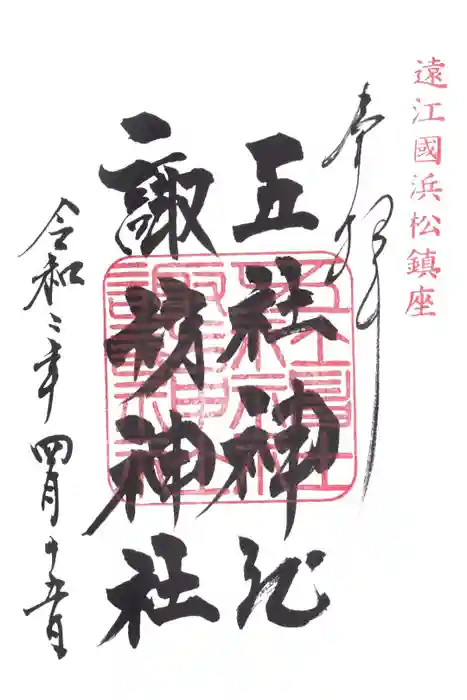 遠江國浜松鎮座
奉拝
五社神社
諏訪神社
令和三年四月十五日